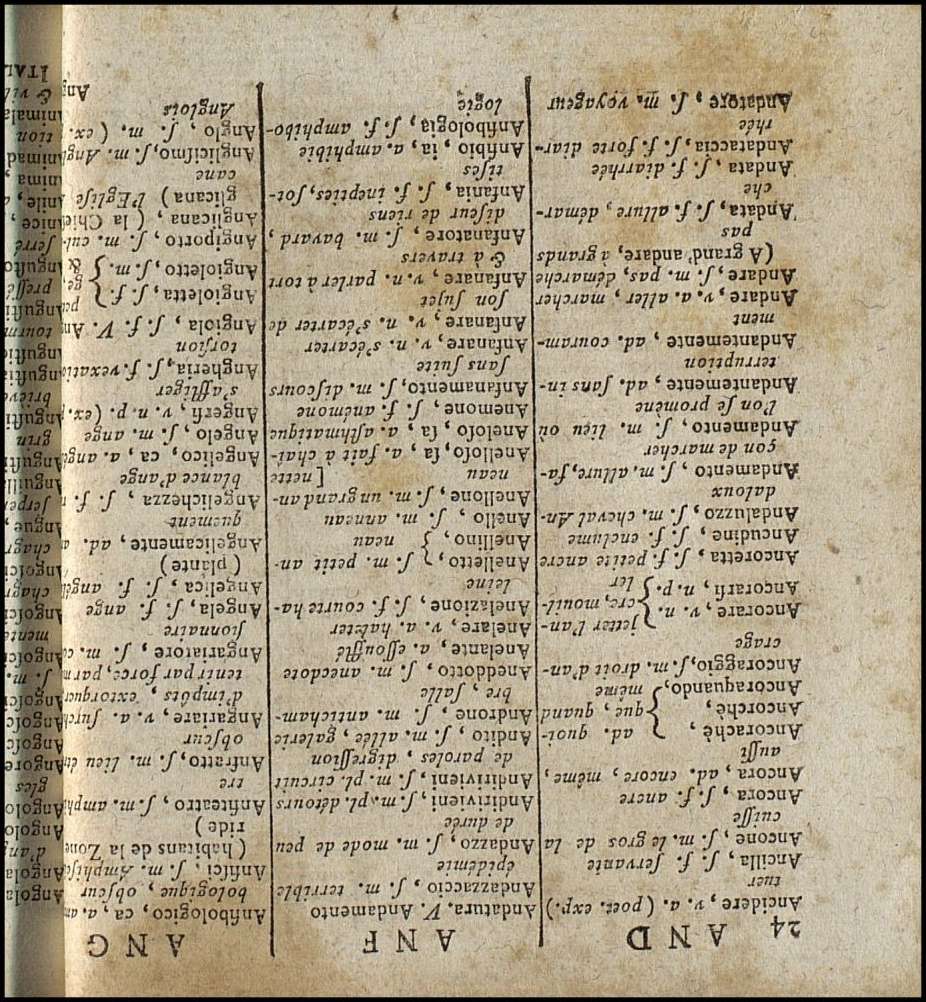 24 AND
Ancidere, v. a. (poet. exp.)
tuer
Ancilla, ſ. f. ſervante
Ancone, ſ. m. le gros de la
cuiſſe
Ancora, ſ. f. ancre
Ancora, ad. encore, même,
auſſi
Ancorachè,
Ancorchè,
Ancoraquando,
} ad. quoi-
que, quand
même
Ancoraggio, ſ. m. droit d'an-
crage
Ancorare, v. n.
Ancorarſi, n. p.
} jetter l'an-
cre, mouil-
ler
Ancoretta, ſ. f. petite ancre
Ancudine, ſ. f. enclume
Andaluzzo, ſ. m. cheval An-
daloux
Andamento, ſ. m. allure, fa-
çon de marcher
Andamento, ſ. m. lieu où
l'on ſe promène
Andantemente, ad. ſans in-
terruption
Andantemente, ad. couram-
ment
Andare, v. a. aller, marcher
Andare, ſ. m. pas, démarche
(A grand' andare, à grands
pas
Andata, ſ. f. allure, démar-
che
Andata, ſ. f. diarrhée
Andataccia, ſ. f. forte diar-
rhée
Andatore, ſ. m. voyageur
ANF
Andatura. V. Andamento
Andazzaccio, ſ. m. terrible
épédémie
Andazzo, ſ. m. mode de peu
de durée
Andirivieni, ſ. m. pl. détours
Andirivieni, ſ. m. pl. circuit
de paroles, digreſſion
Andito, ſ. m. allée, galerie
Androne, ſ. m. anticham-
bre, ſalle
Aneddotto, ſ. m. anecdote
Anelante, a. eſſouflé
Anelare, v. a. haleter
Anelazione, ſ. f. courte ha-
leine
Anelletto,
Anellino,
} ſ. m. petit an-
neau
Anello, ſ. m. anneau
Anellone, ſ. m. un grand an-
neau [nette
Anelloſo, ſa, a. fait à chaî-
Aneloſo, ſa, a. aſthmatique
Anemone, ſ. f. anémone
Anfanamento, ſ. m. diſcours
ſans ſuite
Anfanare, v. n. s'écarter
Anfanare, v. n. s'écarter de
ſon ſujet
Anfanare, v. n. parler à tort
& à travers
Anfanatore, ſ. m. bavard,
diſeur de riens
Anfania, ſ. f. inépties, ſot-
tiſes
Anfibio, ia, a. amphibie
Anfibologia, ſ. f. amphibo-
logie
ANG
Anfibologico, ca, a.
bologique, obſcur
Anfiſci, ſ. m. Amphiſ
(habitans de la Zone
ride)
Anfiteatro, ſ. m. amph
tre
Anfratto, ſ. m. lieu
obſcur
Angariare, v. a. ſurch
d'impôts, extorquer
tenir par force, par
Angariatore, ſ. m.
ſionnaire
Angela, ſ. f. ange
Angelica, ſ. f. angé
(plante)
Angelicamente, ad.
quement
Angelichezza, ſ. f.
blance d'ange
Angelico, ca, a. angé
Angelo, ſ. m. ange
Angerſi, v. n. p. (ex.
s'affliger
Angheria, ſ. f. vexatio
torſion
Angiola, ſ. f. V. An
Angioletta, ſ. f.
Angioletto, ſ. m.
Angiporto, ſ. m. cul
Anglicana, (la Chieſ
glicana) l'Egliſe
cane
Anglicilmo, ſ. m. Ang
Anglo, ſ. m. (ex.
Anglois